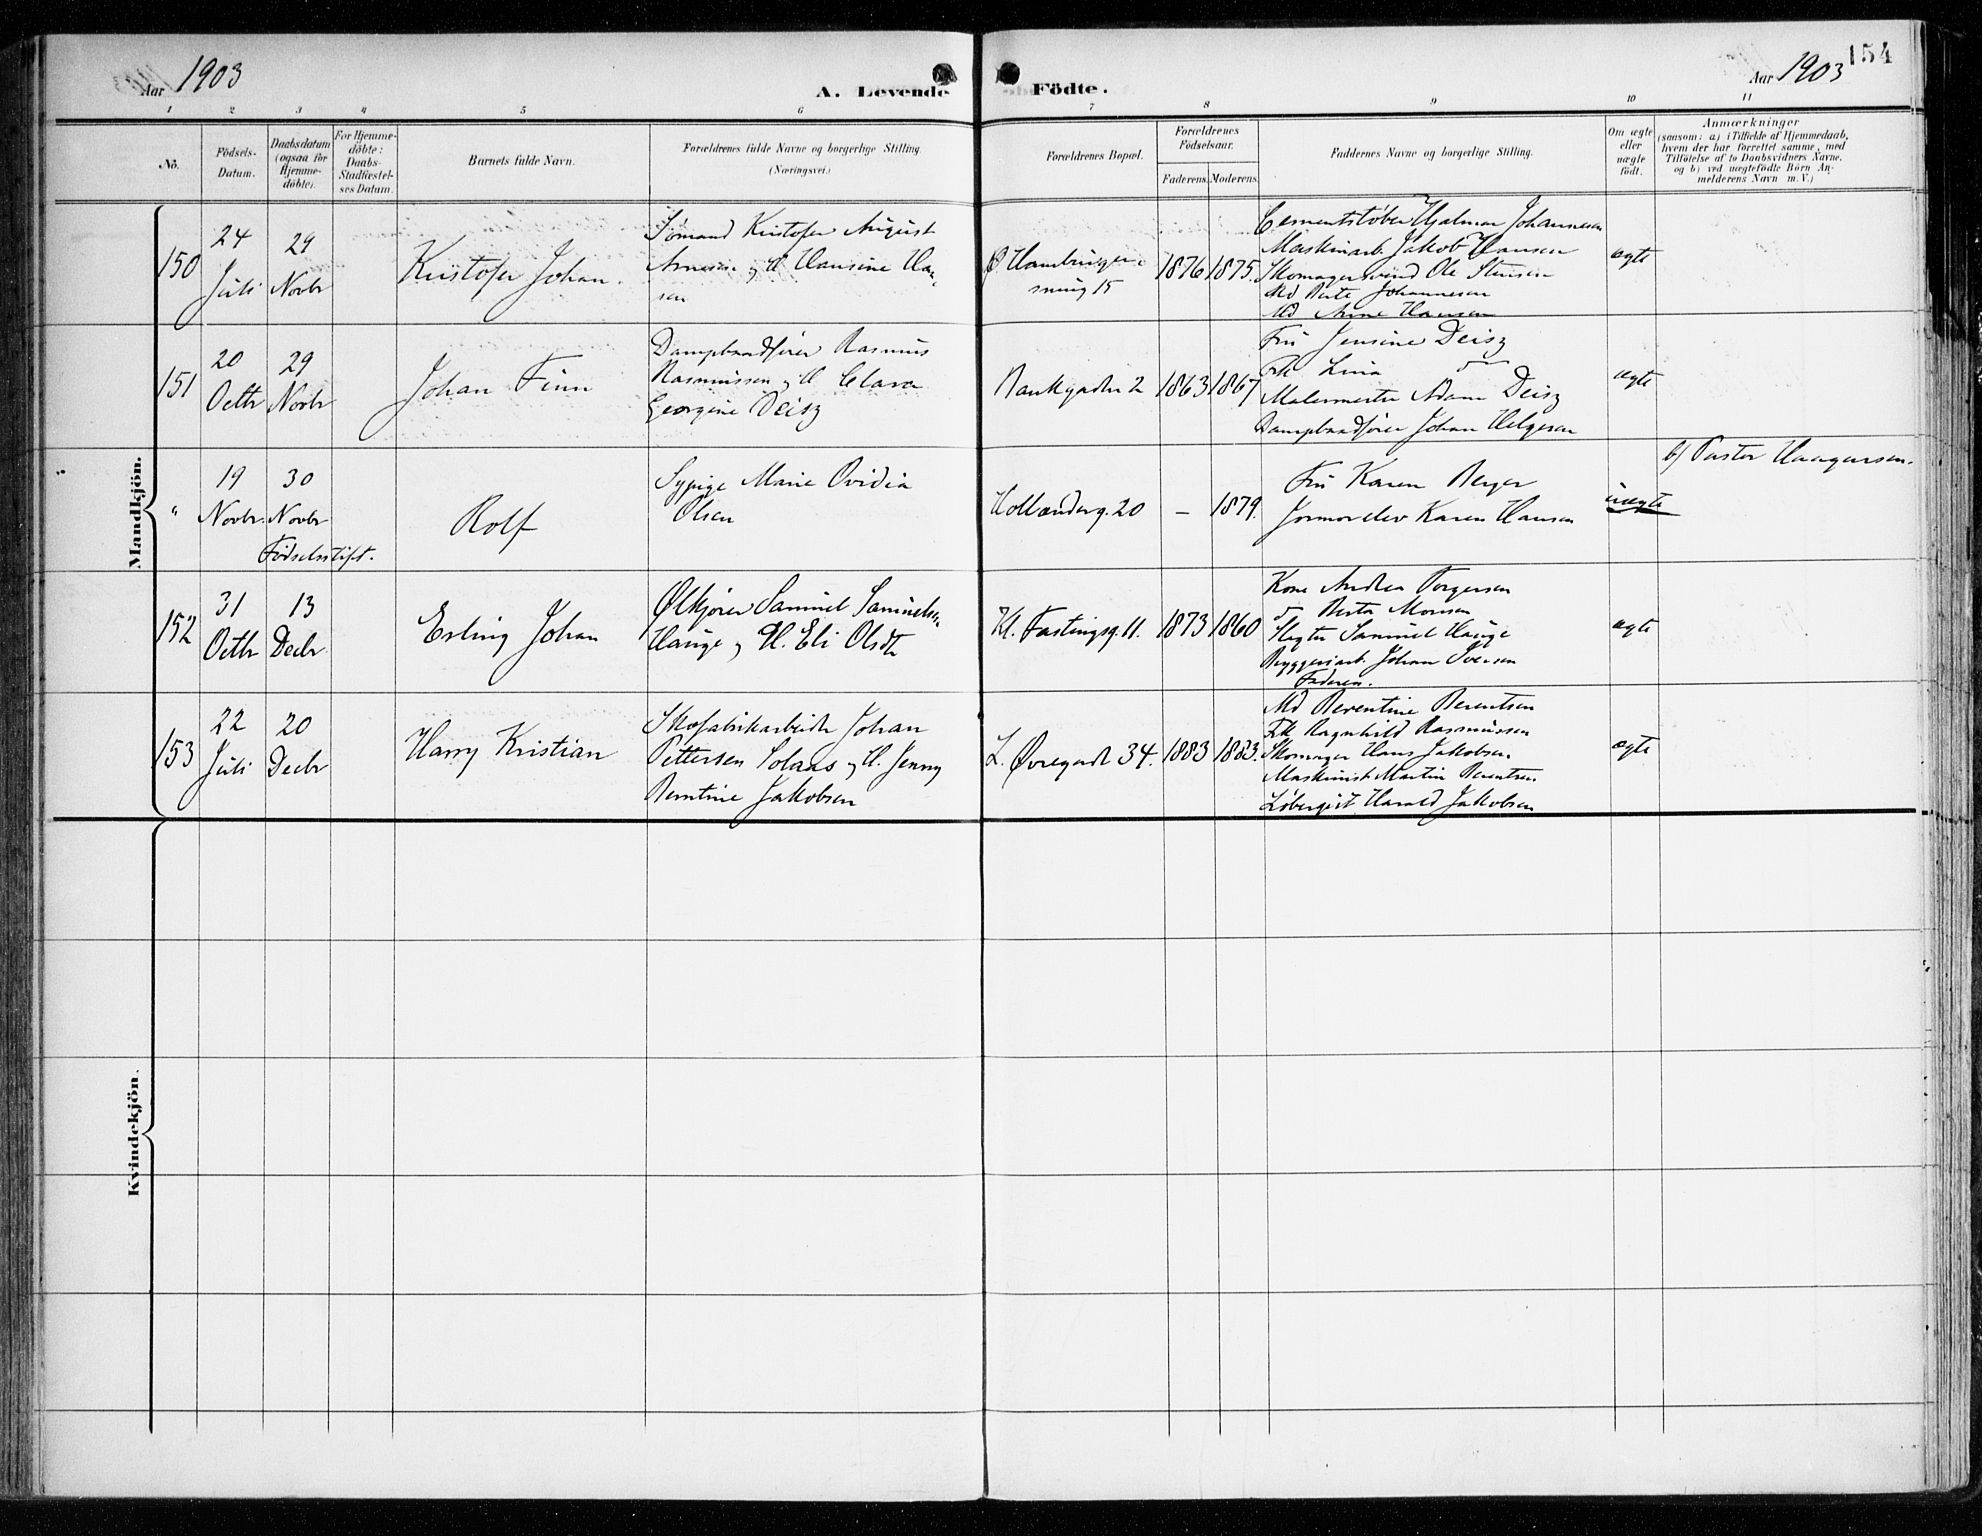 Aar 1903
A. Levende Födte.
Aar 1903
154
1 2 3 4 5 6 7 8 9 10 11
No.
Födsels-Datum.
Daabsdatum (ogsaa for Hjemme-döbte).
For Hjemme-döbte: Daabs-Stadfæstel-ses Datum.
Barnets fulde Navn.
Forældrenes fulde Navne og borgerlige Stilling. (Næringsvei.)
Forældrenes Bopæl.
Forældrenes Födselsaar.
Faderens. Moderens.
Faddernes Navne og borgerlige Stilling.
Om ægte eller uægte födt.
Anmærkninger
(saasom: a) i Tilfælde af Hjemmedaab,
hvem der har forrettet samme, med
Tilföielse af to Daabsvidners Navne.
og b) ved uægtefödte Börn An-
melderens Navn m. V.)
Mandkjön.
150
24 Juli
29 Novbr
Kristofer Johan.
Sömand Kristofer August
Arnesen og H. Hansine Han-
sen
Ø Hamburger-
smug 15
1876 1875.
Cementstøber Hjalmar Johannesen
Maskinarb. Jakob Hansen
Skomagersvend Ole Stensen
Md Berte Johannesen
Md Anne Hansen
ægte
151
20 Octbr
29 Novbr
Johan Finn
Dampbaadfører Rasmus
Rasmussen og H. Clara
Georgine Deisz
Bankgaden 2
1863 1867
Fru Jensine Deisz
Frk Lina do
Malermester Adam Deisz
Dampbaadfører Johan Helgesen
ægte
"
19 Novbr.
30 Novbr
Fødselsstift.
Rolf
Sypige Marie Ovidia
Olsen
Hollænderg. 20
– 1879.
Fru Karen Berger
Jormorelev Karen Hansen
uægte
b) Pastor Haagensen.
152
31 Octbr
13 Decbr
Erling Johan
Ølkjører Samuel Samuelsen
Hauge og H. Eli Olsdtr
Kl. Fastingsg. 11.
1873 1860
Kone Andrea Torgersen
do Berta Monsen
Slagter Samuel Hauge
Bryggeriarb. Johan Iversen
Faderen.
ægte
153
22 Juli
20 Decbr
Harry Kristian
Skofabrikarbeider Johan
Pettersen Solaas og H. Jenny
Berntine Jakobsen
L. Øvregade 34.
1883 1883.
Md Berentine Berentsen
Frk Ragnhild Rasmussen
Skomager Hans Jakobsen.
Maskinist Martin Berentsen.
Løbergut Harald Jakobsen
ægte
Kvindekjön.